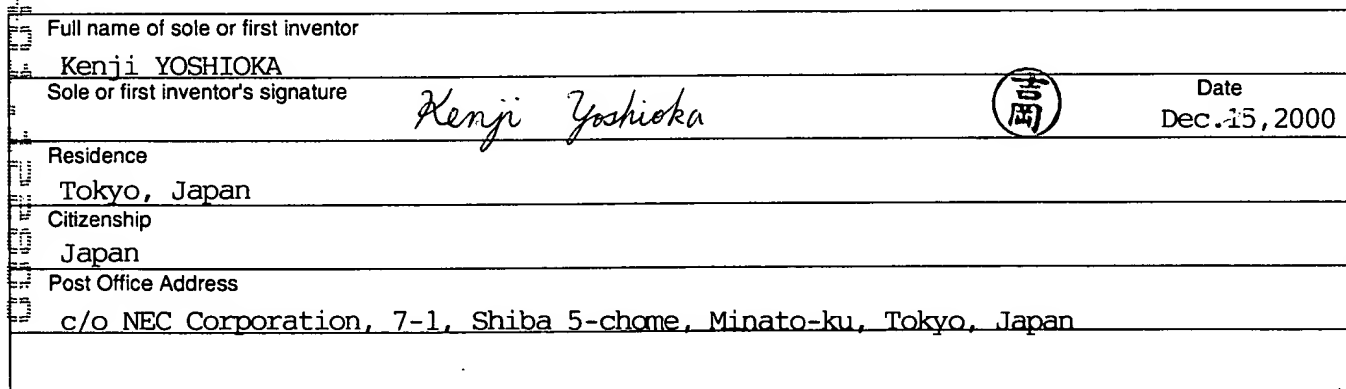 Full name of sole or first inventor
Kenji YOSHIOKA
Sole or first inventor's signature
Kenji Yoshioka
吉岡
Date
Dec. 15, 2000
Residence
Tokyo, Japan
Citizenship
Japan
Post Office Address
c/o NEC Corporation, 7-1, Shiba 5-chome, Minato-ku, Tokyo, Japan